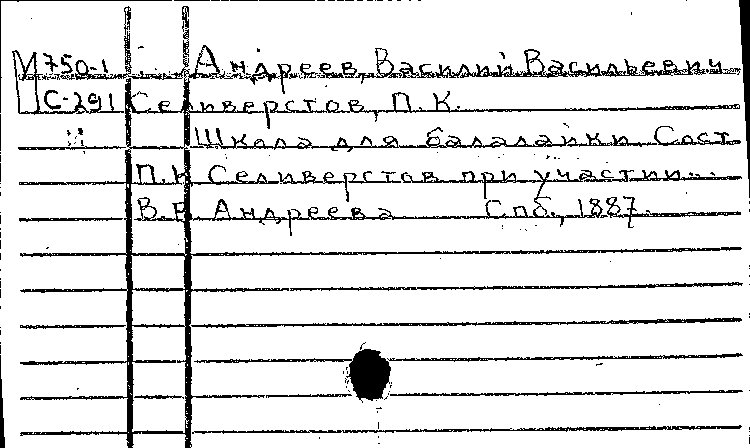 М750-1 Андреев, Василий Васильевич
С-291 Селиверстов, П. К.
Школа для балалайки. Сост.
П.К Селиверстов при участии...
В.В. Андреева Спб., 1887.